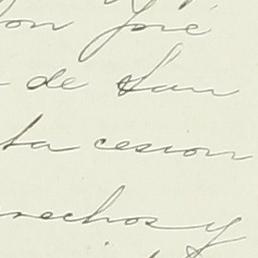 don José
de San
ta cesion
rechos y